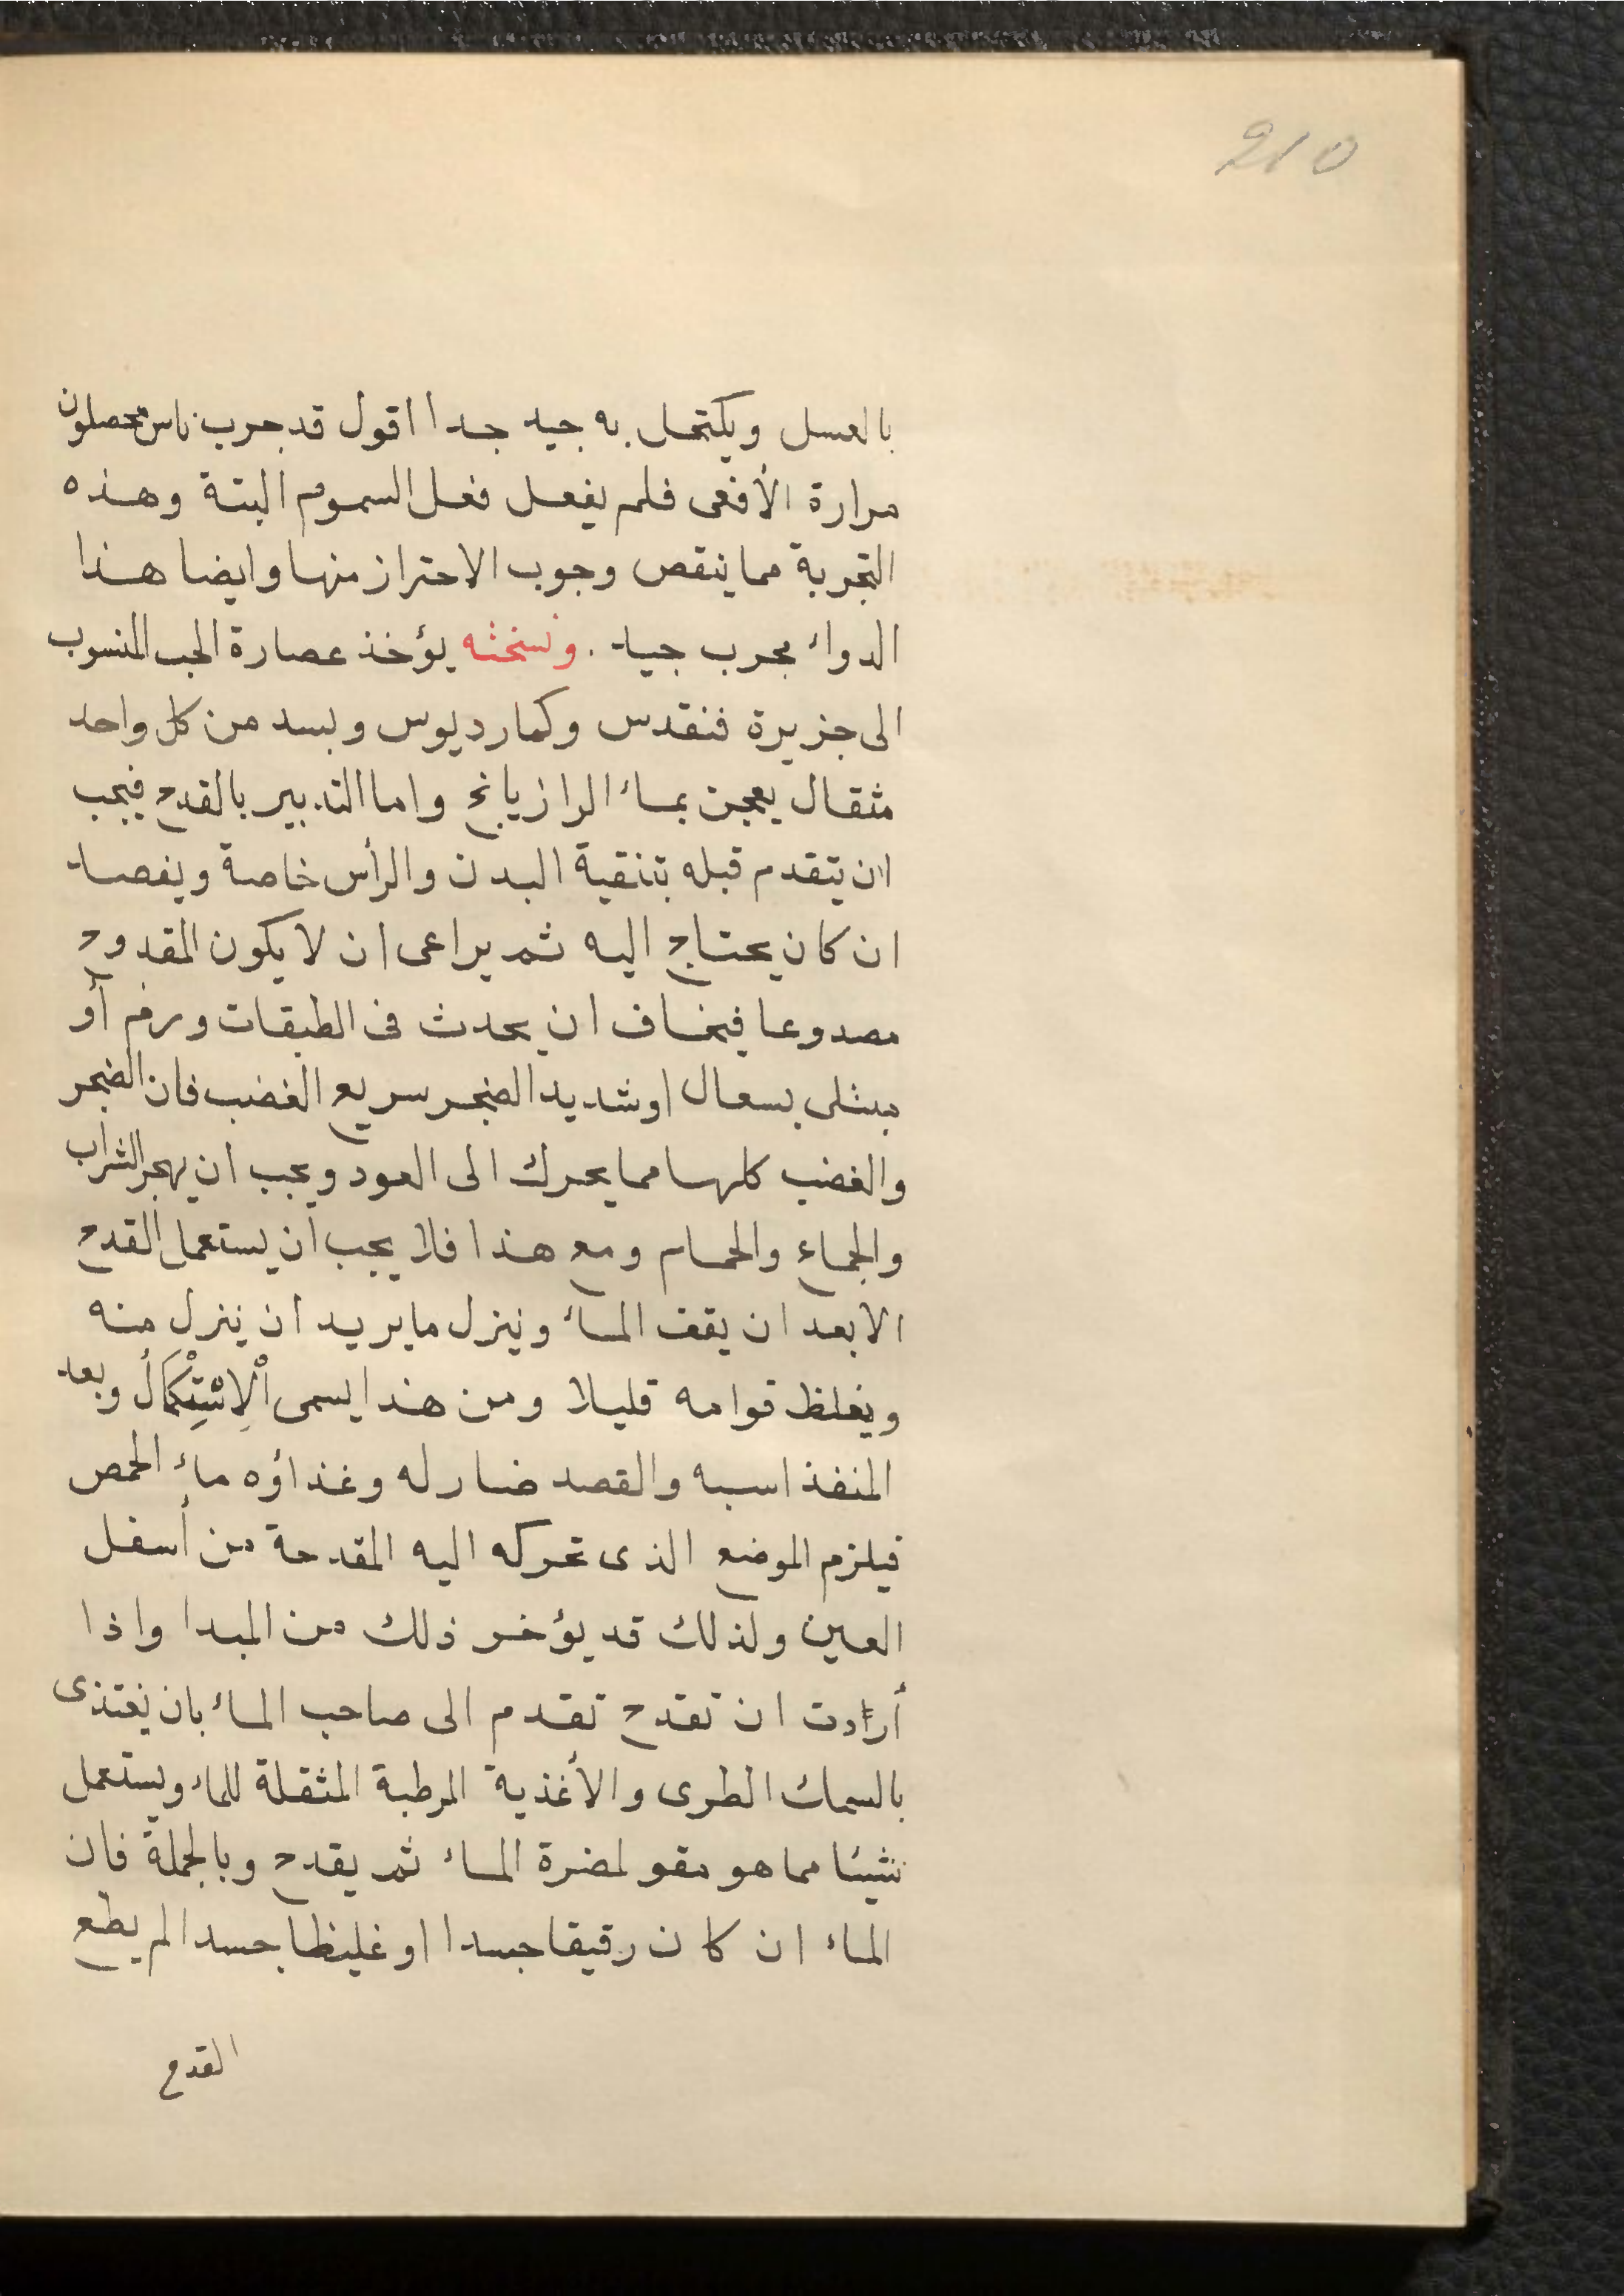 210
بالعسل ويكتحل به جيد جدا اقول قد جرب ناس محصلون
مرارة الأفعى فلم يفعل فعل السموم البتة وهذه
التجربة مما ينقص وجوب الاحتراز منها وايضا هذا
الدواء مجرب جيد . ونسخته يؤخذ عصارة الحب المنسوب
الى جزيرة فنقدس وكمارديوس وبسد من كل واحد
مثقال يعجن بماء الرازيانج واما التدبير بالقدح فيجب
ان يتقدم قبله بتنقية البدن والرأس خاصة ويفصد
ان كان يحتاج اليه ثم يراعى ان لا يكون المقدوح
مصدوعا فيخاف ان يحدث فى الطبقات ورم أو
مبتلى بسعال او شديد الضجر سريع الغضب فان الضجر
والغضب كلها مما يحرك الى العود ويجب ان يهجر الشراب
والجماع والحمام ومع هذا فلا يجب ان يستعمل القدح
الا بعد ان يقف الماء وينزل ما يريد ان ينزل منه
ويغلظ قوامه قليلا ومن هذا يسمى الاستكمال وبعد
المنفذ اسبه والقصد ضار له وغذاؤه ماء الحمص
فيلزم الموضع الذى تحركه اليه المقدحة من أسفل
العين ولذلك قد يؤخر ذلك من المبدا واذا
أردت ان تقدح تقدم الى صاحب الماء بان يغتذى
بالسمك الطرى والأغذية المرطبة المثقلة للماء ويستعمل
شيئا مما هو مقو لمضرة الماء ثم يقدح وبالجملة فان
الماء ان كان رقيقا جسدا او غليظا جسدا لم يطع
القدح